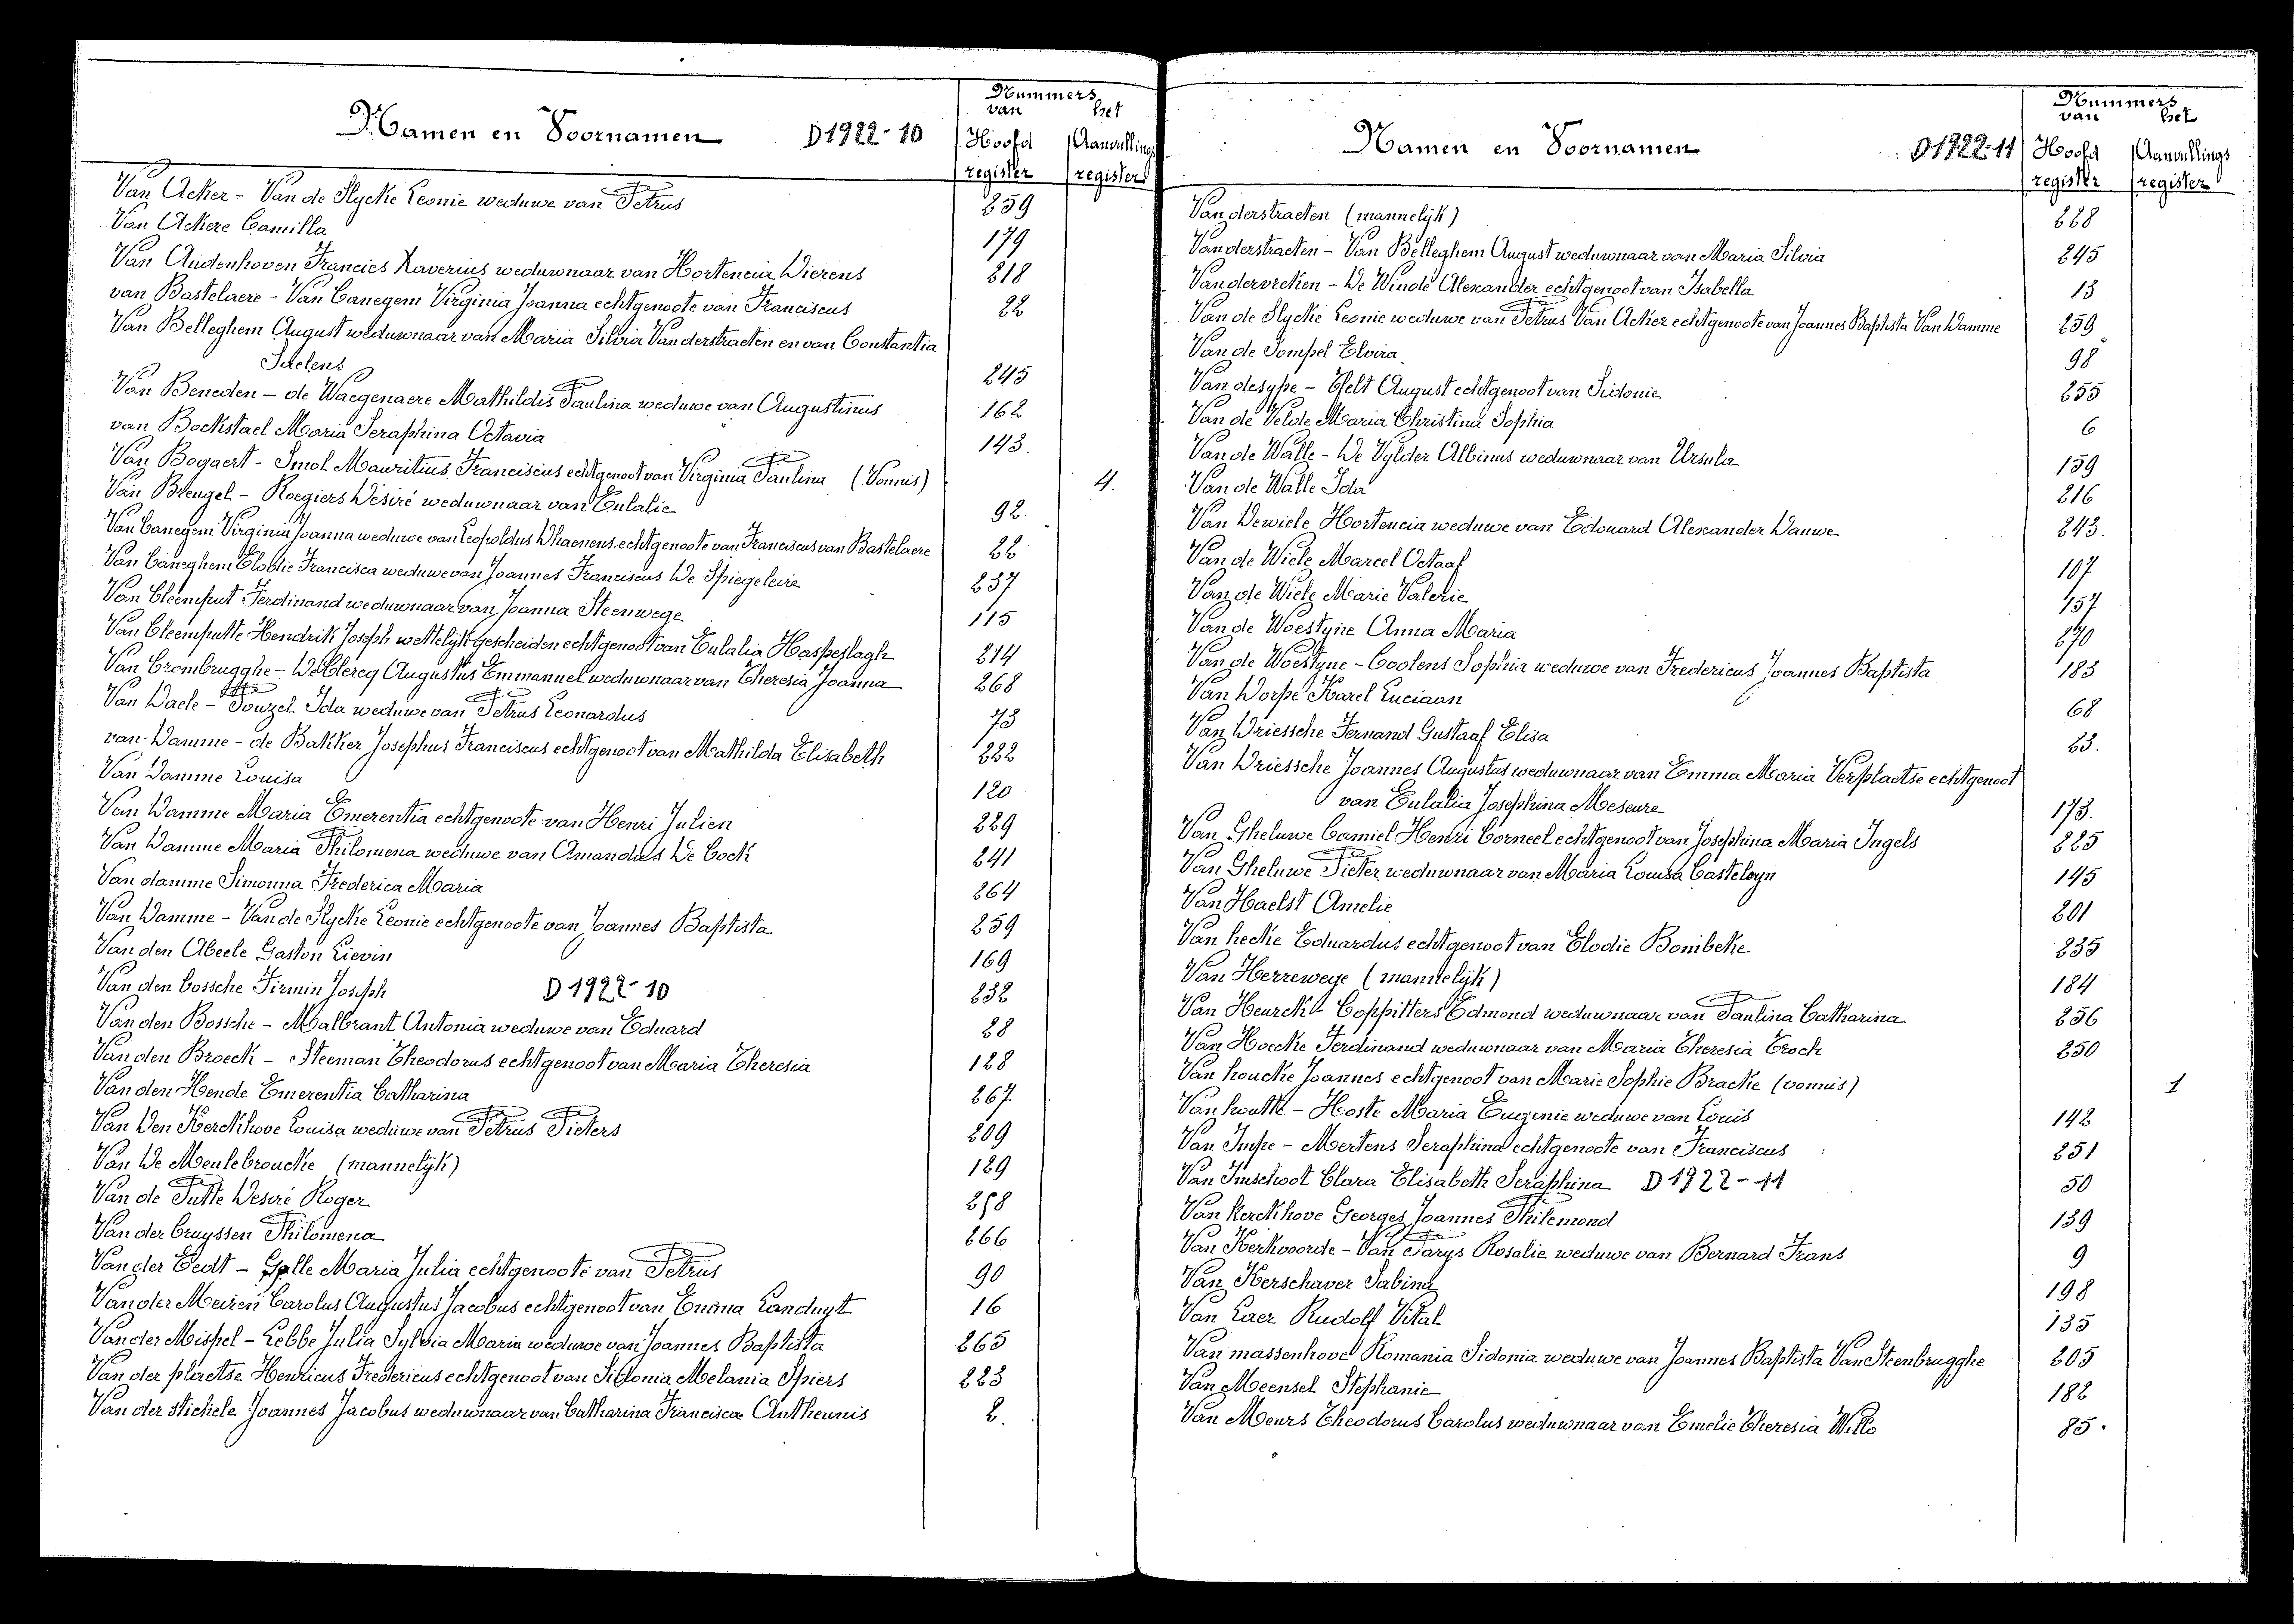 Namen en Voornamen D1922-10
Nummers
van het
Hoofd register Aanvullings register
Van Acker - Van de Slycke Leonie weduwe van Petrus 259
Van Ackere Camilla 179
Van Audenhoven Francies Xaverius weduwnaar van Hortencia Dierens 218
van Bastelaere - Van Canegem Virginia Joanna echtgenoote van Franciscus 22
Van Belleghem August weduwnaar van Maria Silvia Vanderstraeten en van Constantia
Saelens 245
Van Beneden - de Waegenaere Mathildis Paulina weduwe van Augustinus 162
van Bockstael Maria Seraphina Octavia 143.
Van Bogaert - Smol Mauritius Franciscus echtgenoot van Virginia Paulina (Vonnis) 4.
Van Brengel - Roegiers Désiré weduwnaar van Eulalie 92.
Van Canegem Virginia Joanna weduwe van Leopoldus Dhaenens echtgenoote van Franciscus van Bastelaere 22
Van Caneghem Elodie Francisca weduwe van Joannes Franciscus De Spiegeleire 237
Van Cleemput Ferdinand weduwnaar van Joanna Steenwege 115
Van Cleemputte Hendrik Joseph wettelijk gescheiden echtgenoot van Eulalia Haspeslagh 214
Van Crombrugghe - De Clercq Augustus Emmanuel weduwnaar van Theresia Joanna 268
Van Daele - Pouzel Ida weduwe van Petrus Leonardus 73
van Damme - de Bakker Josephus Franciscus echtgenoot van Mathilda Elisabeth 222
Van Damme Louisa 120
Van Damme Maria Emerentia echtgenoote van Henri Julien 229
Van Damme Maria Philomena weduwe van Amandus De Cock 241
Van damme Simonna Frederica Maria 264
Van Damme - Van de Slycke Leonie echtgenoote van Joannes Baptista 259
Van den Abeele Gaston Lievin 169
Van den bossche Firmin Joseph D1922-10 232
Van den Bossche - Malbrant Antonia weduwe van Eduard 28
Van den Broeck - Steeman Theodorus echtgenoot van Maria Theresia 128
Van den Hende Emerentia Catharina 267
Van Den Kerckhove Louisa weduwe van Petrus Pieters 209
Van De Meulebroucke (mannelijk) 129
Van de Putte Desiré Roger 258
Van der bruyssen Philomena 266
Van der Eedt - Gelle Maria Julia echtgenoote van Petrus 90
Van der Meiren Carolus Augustus Jacobus echtgenoot van Emma Landuyt 16
Van der Mispel - Lebbe Julia Sylvia Maria weduwe van Joannes Baptista 265
Van der plaetse Henricus Fredericus echtgenoot van Sidonia Melania Spiers 223
Van der stichele Joannes Jacobus weduwnaar van Catharina Francisca Antheunis 2.
Namen en Voornamen D1922-11
Nummers
van het
Hoofd register Aanvullings register
Vanderstraeten (mannelijk) 228
Vanderstraeten - Van Belleghem August weduwnaar van Maria Silvia 245
Vandervreken - De Winde Alexander echtgenoot van Isabella 13
Van de Slycke Leonie weduwe van Petrus Van Acker echtgenoote van Joannes Baptista Van Damme 259
Van de Sompel Elvira 98
Van desype - Eelt August echtgenoot van Sidonie 255
Van de Velde Maria Christina Sophia 6
Van de Walle - De Vylder Albinus weduwnaar van Ursula 159
Van de Walle Ida 216
Van Dewiele Hortencia weduwe van Edouard Alexander Dauwe 243.
Van de Wiele Marcel Octaaf 107
Van de Wiele Marie Valerie 157
Van de Woestyne Anna Maria 270
Van de Woestyne - Coolens Sophia weduwe van Fredericus Joannes Baptista 183
Van Dorpe Karel Luciaan 68
Van Driessche Fernand Gustaaf Elisa 23.
Van Driessche Joannes Augustus weduwnaar van Emma Maria Verplaetse echtgenoot
van Eulalia Josephina Meseure 173.
Van Gheluwe Camiel Henri Corneel echtgenoot van Josephina Maria Ingels 225
Van Gheluwe Pieter weduwnaar van Maria Louisa Casteleyn 145
Van Haelst Amelie 201
Van hecke Eduardus echtgenoot van Elodie Bombeke 235
Van Herrewege (mannelijk) 184
Van Heurck - Coppitters Edmond weduwnaar van Paulina Catharina 256
Van Hoecke Ferdinand weduwnaar van Maria Theresia Eroch 250
Van houcke Joannes echtgenoot van Marie Sophie Bracke (vonnis) 1
Van houtte - Hoste Maria Eugenie weduwe van Louis 142
Van Impe - Mertens Seraphina echtgenoote van Franciscus 251
Van Imschoot Clara Elisabeth Seraphina D1922-11 50
Van Kerckhove Georges Joannes Philemond 139
Van Kerkvoorde - Van Parys Rosalie weduwe van Bernard Frans 9
Van Kerschaver Sabina 198
Van Laer Rudolf Vital 135
Van massenhove Romania Sidonia weduwe van Joannes Baptista Van Steenbrugghe 205
Van Meensel Stephanie 182
Van Meurs Theodorus Carolus weduwnaar van Emelie Theresia Wille 85.